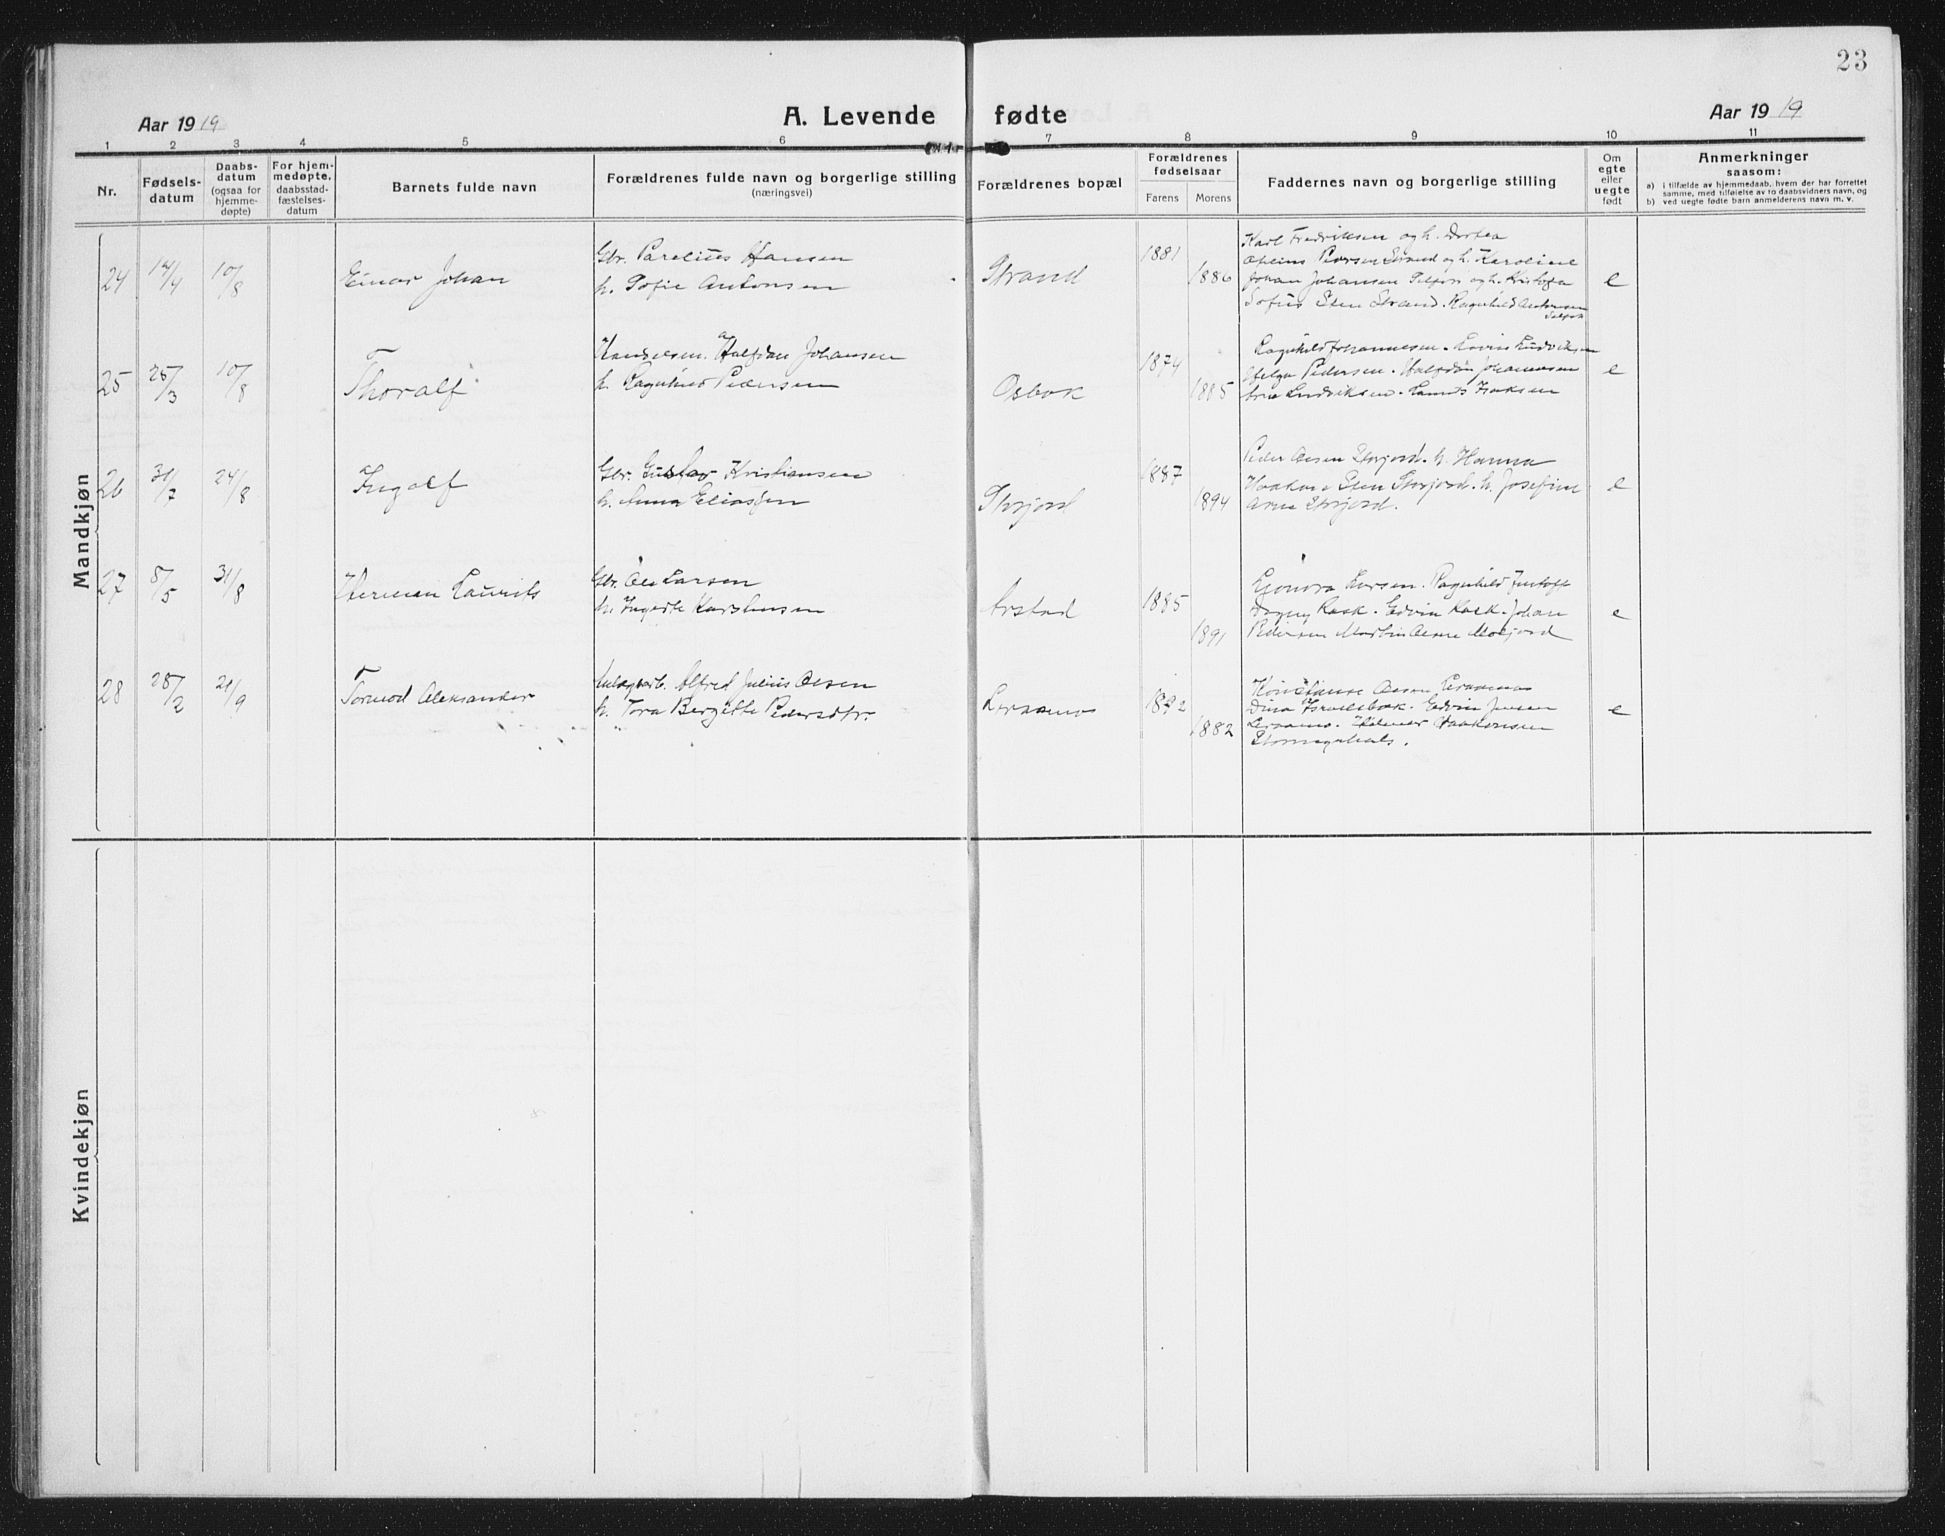 23
A. Levende fødte
Aar 1919
Aar 1919
1 2 3 4 5 6 7 8 9 10 11
Nr.
Fødsels-
datum
Daabs-
datum
(ogsaa for
hjemme-
døpte)
For hjem-
medøpte,
daabsstad-
fæstelses-
datum
Barnets fulde navn
Forældrenes fulde navn og borgerlige stilling
(næringsvei)
Forældrenes bopæl
Forældrenes
fødselsaar
Farens Morens
Faddernes navn og borgerlige stilling
Om
egte
eller
uegte
født
Anmerkninger
saasom:
a) i tilfælde av hjemmedaab, hvem der har forrettet
samme, med tilføielse av to daabsvidners navn, og
b) ved uegte fødte barn anmelderens navn m. v.
Mandkjøn
24 14/4 10/8 Einar Johan
Gbr. Parelius Hansen
h. Sofie Antonsen
Strand 1881 1886
Karl Fredriksen og h. Dortea
Pedersen Strand og h. Karoline
Johan Johansen og h.
Sofus Strand. Ragnhild Antonsen
e
25 25/3 10/8 Thoralf
Handelsm. Halfdan Johansen
h. Ragnhild Pedersen
Osbak 1874 1885
Ragnhild Johannesen. Ludviksen
Helga Pedersen. Halfdan Johannesen
Ludviksen. Isaksen
e
26 31/7 24/8 Ingolf
Gbr. Gustav Kristiansen
h. Anna Eliassen
Storjord 1887 1894
Peder Olsen Storjord. h. Hanna
Storjord. h. Josefine
Arne Storjord.
e
27 5/5 31/8 Herman Laurits
Gbr. Ole Larsen
h. Karstensen
Arstad 1885 1891
Larsen. Ragnhild
Dagny Rask. Edvin Rask. Johan
Pedersen Martin Olsen Moljord
e
28 25/2 21/9 Tormod Aleksander
Alfred Julius Olsen
h. Tora Bergitte Pedersdtr.
Leramo 1882
Olsen
Dina Israelsbak. Edvin Jensen
Leramo. Haakonsen
e
Kvindekjøn